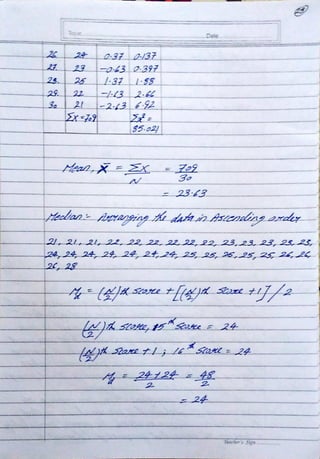 28
Topic
Date
26. 24 0.37 0.137
27. 23 -0.63 0.397
28. 25 1.37 1.88
29. 22 -1.63 2.66
30 21 -2.63 6.92
ΣX=709 Σx²=
85.021
Mean, X̄ = ΣX/N = 709/30
= 23.63
Median:- Arranging the data in Ascending order
21, 21, 21, 22, 22, 22, 22, 22, 22, 23, 23, 23, 23, 23,
24, 24, 24, 24, 24, 24, 24, 25, 25, 25, 25, 25, 26, 26,
26, 28
Md = (N/2)th score + [(N/2)th score +1] / 2
(N/2)th score, 15th score = 24
(N/2)th score +1 ; 16th score = 24
Md = 24+24/2 = 48/2
= 24
Teacher's Sign